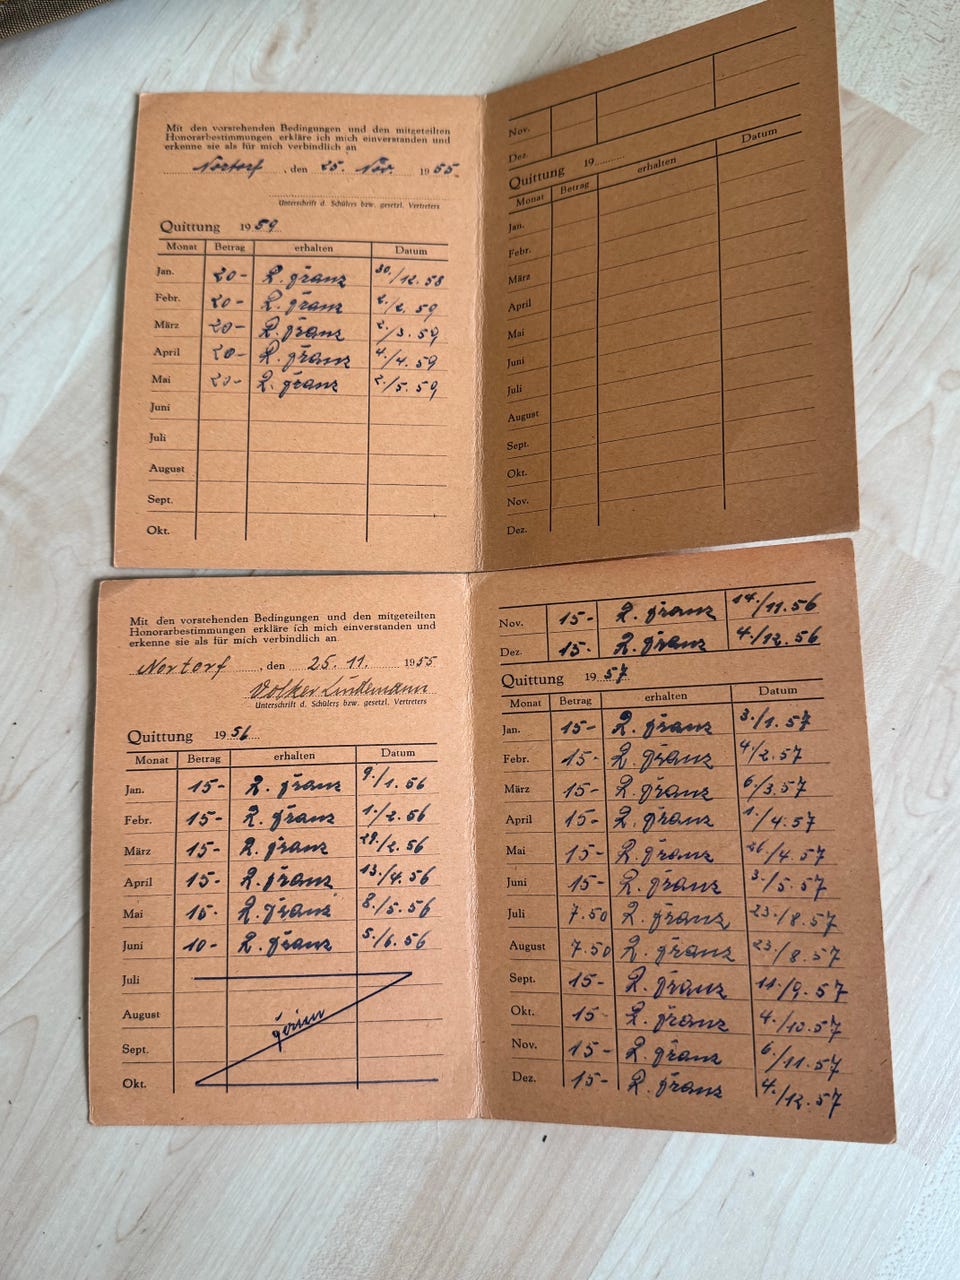 Mit den vorstehenden Bedingungen und den mitgeteilten
Honorarbestimmungen erkläre ich mich einverstanden und
erkenne sie als für mich verbindlich an
Nortorf, den 25. Nov. 1955.
Unterschrift d. Schülers bzw. gesetzl. Vertreters
Quittung 1959
Monat Betrag erhalten Datum
Jan. 20- L. Franz 30./12.58
Febr. 20- L. Franz 2./2. 59
März 20- L. Franz 2./3. 59
April 20- L. Franz 4./4. 59
Mai 20- L. Franz 2./5. 59
Juni
Juli
August
Sept.
Okt.
Nov.
Dez.
Quittung 19
Monat Betrag erhalten Datum
Jan.
Febr.
März
April
Mai
Juni
Juli
August
Sept.
Okt.
Nov.
Dez.
Mit den vorstehenden Bedingungen und den mitgeteilten
Honorarbestimmungen erkläre ich mich einverstanden und
erkenne sie als für mich verbindlich an.
Nortorf, den 25. 11. 1955
Volker Lindemann
Unterschrift d. Schülers bzw. gesetzl. Vertreters
Quittung 1956
Monat Betrag erhalten Datum
Jan. 15- L. Franz 9./1. 56
Febr. 15- L. Franz 1./2. 56
März 15- L. Franz 29./2. 56
April 15- L. Franz 13./4. 56
Mai 15- L. Franz 8./5. 56
Juni 10- L. Franz 5./6. 56
Juli
August
Sept.
Okt.
Nov. 15- L. Franz 14./11.56
Dez. 15- L. Franz 4./12.56
Quittung 1957
Monat Betrag erhalten Datum
Jan. 15- L. Franz 3./1.57
Febr. 15- L. Franz 4./2.57
März 15- L. Franz 6./3.57
April 15- L. Franz 1./4.57
Mai 15- L. Franz 26./4.57
Juni 15- L. Franz 3./5.57
Juli 7.50 L. Franz 23./8.57
August 7.50 L. Franz 23./8.57
Sept. 15- L. Franz 11./9.57
Okt. 15- L. Franz 4./10.57
Nov. 15- L. Franz 6./11.57
Dez. 15- L. Franz 4./12.57